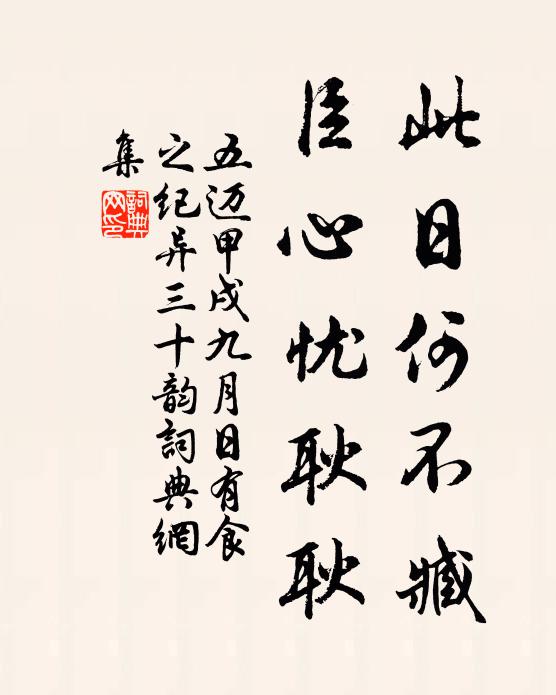 此日何不臧
臣心忧耿耿
五迈甲戌九月日有食
之纪异三十韵詞典網
集
詞典
网印